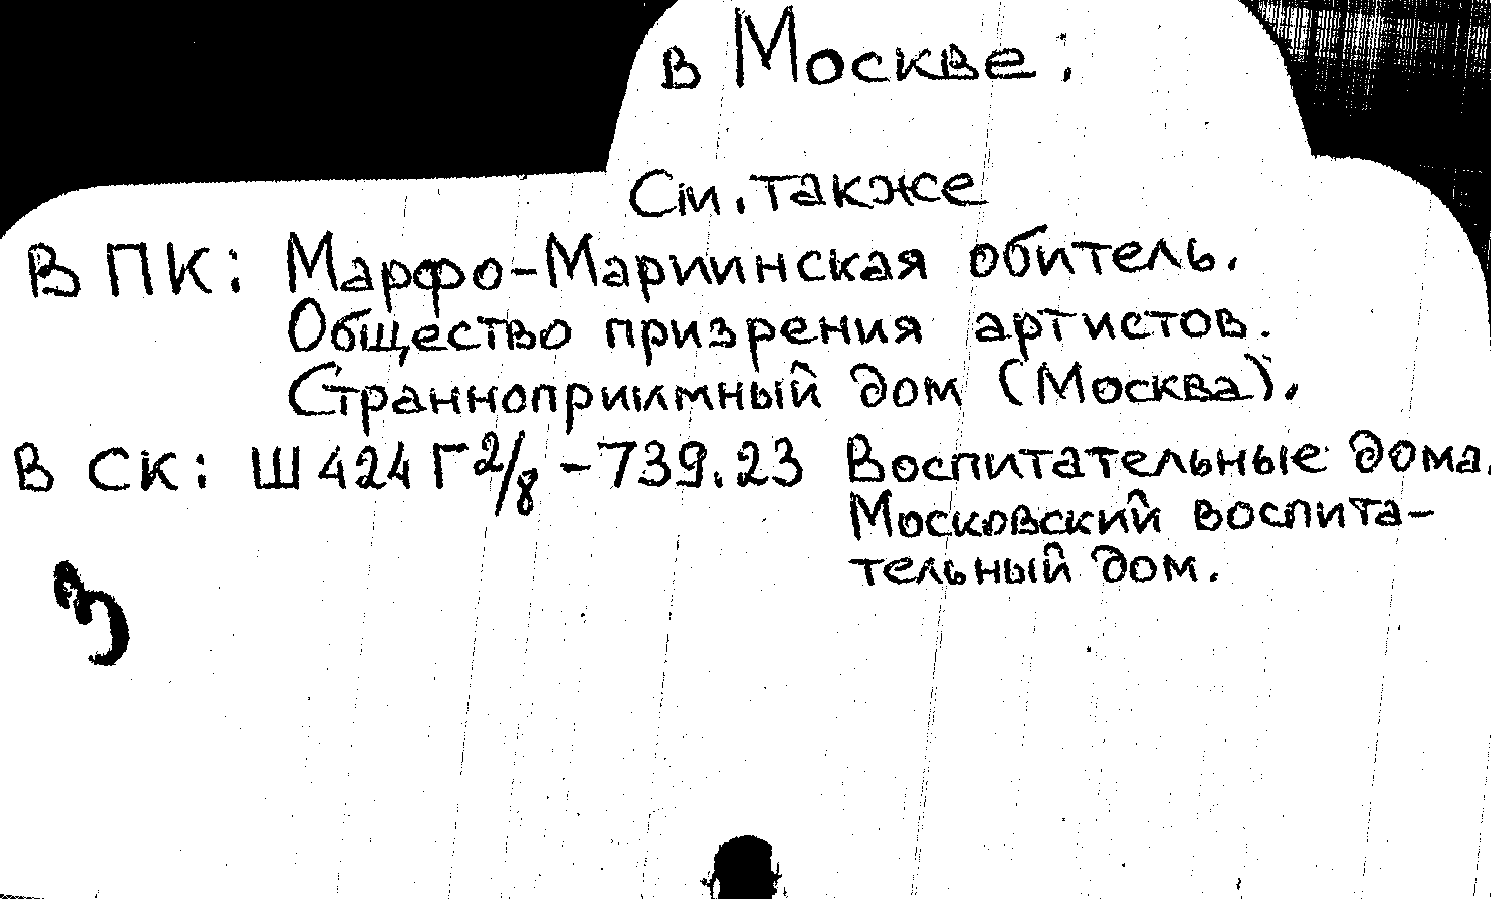 в Москве:
См. также
В ПК: Марфо-Мариинская обитель.
Общество призрения артистов.
Странноприимный дом (Москва).
В СК: Ш424Г2/8-739.23 Воспитательные дома.
Московский воспита-
тельный дом.